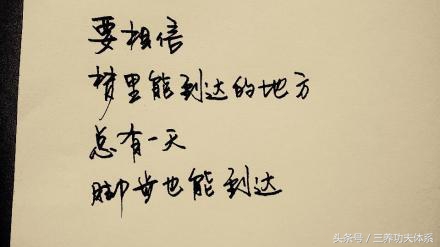 要相信
梦里能到达的地方
总有一天
脚步也能到达
头条号／三养功夫体系